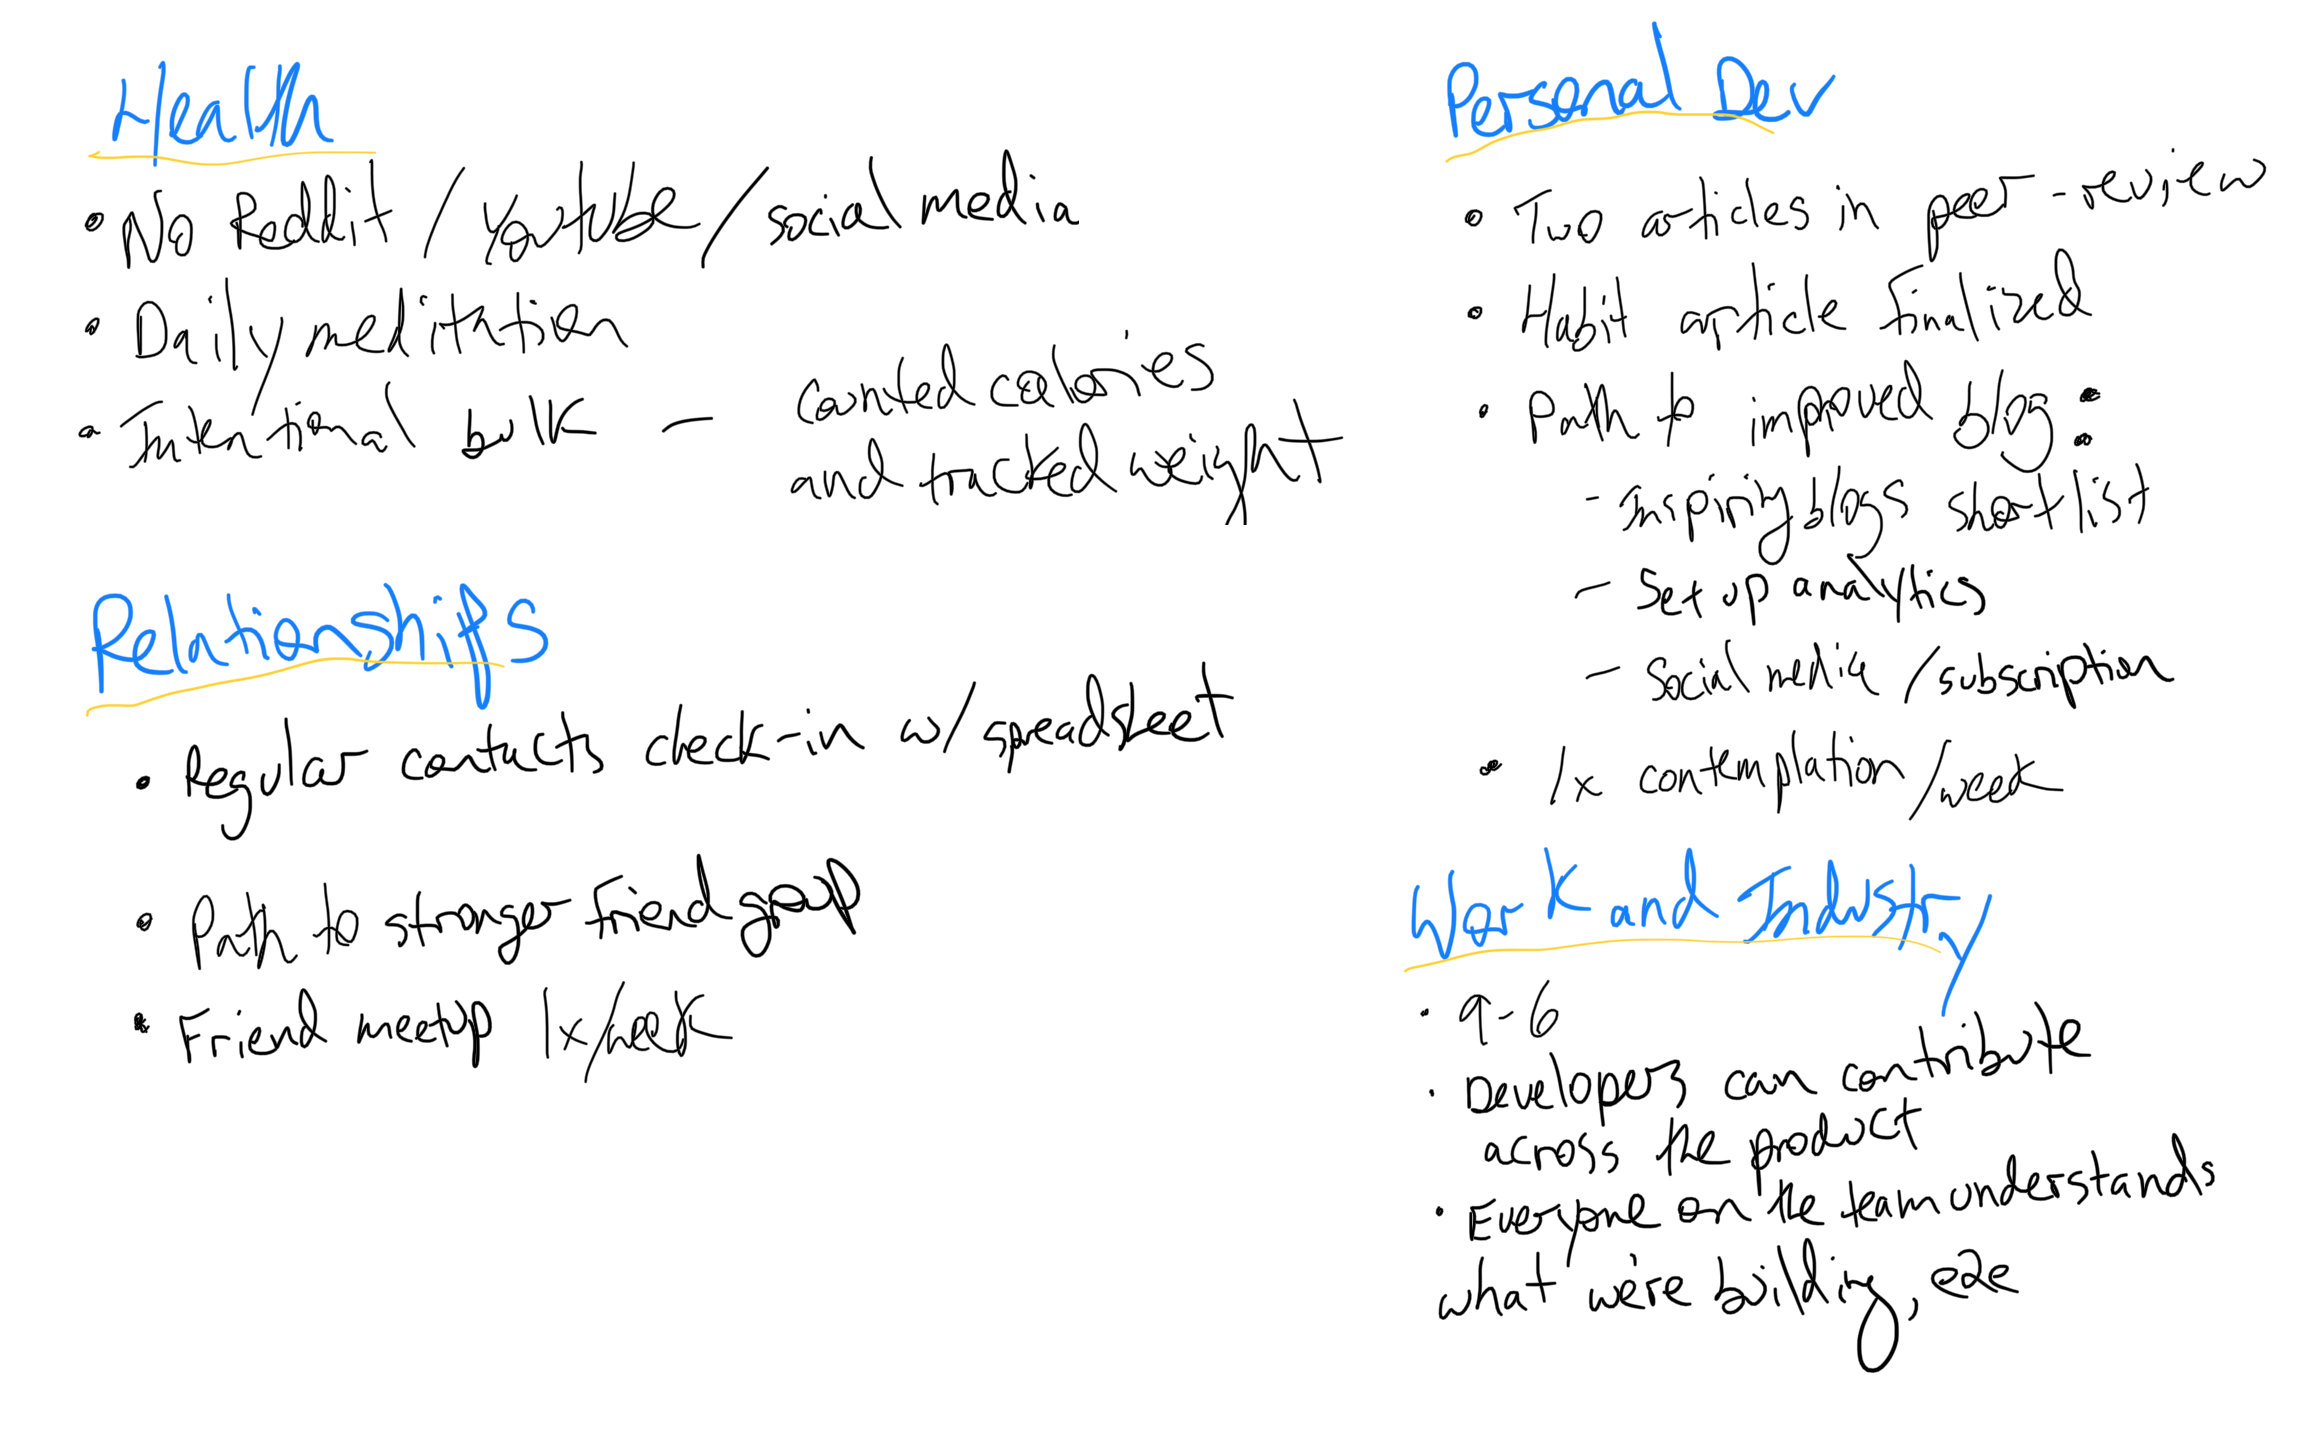 Health
• No Reddit / Youtube / social media
• Daily meditation
• Intentional bulk — counted calories
and tracked weight
Relationships
• Regular contacts check-in w/ spreadsheet
• Path to stronger friend group
• Friend meetup 1x/week
Personal Dev
• Two articles in peer-review
• Habit article finalized
• Path to improved blog:
- Inspiring blogs shortlist
- Set up analytics
- Social media / subscription
• 1x contemplation/week
Work and Industry
• 9-6
• Developers can contribute
across the product
• Everyone on the team understands
what we're building, e2e